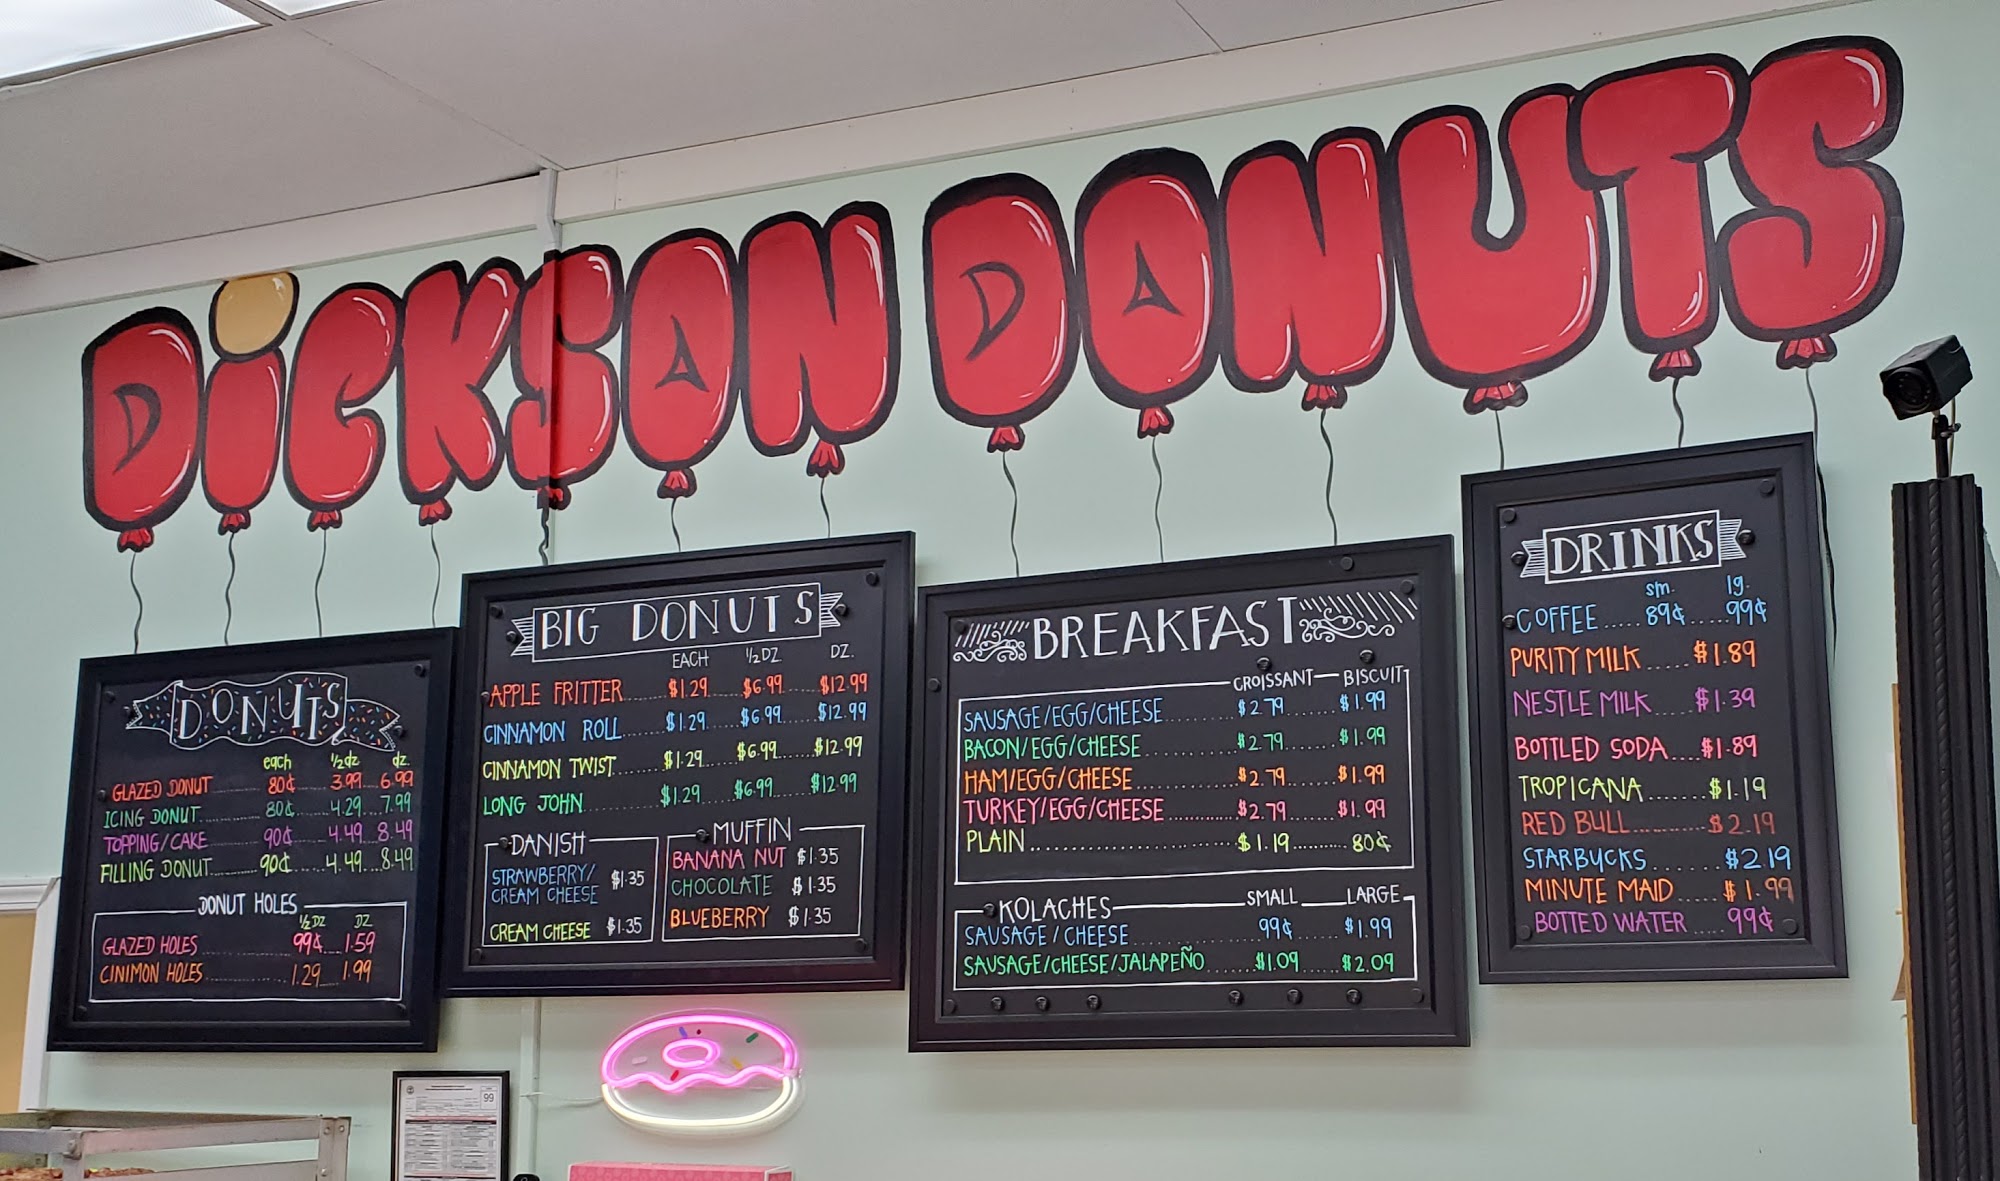 DICKSON DONUTS
DONUTS
each 1/2dz dz.
GLAZED DONUT 80¢ 3.99 6.99
ICING DONUT 80¢ 4.29 7.99
TOPPING/CAKE 90¢ 4.49 8.49
FILLING DONUT 90¢ 4.49 8.49
DONUT HOLES
1/2 DZ DZ
GLAZED HOLES 99¢ 1.59
CINIMON HOLES 1.29 1.99
BIG DONUTS
EACH 1/2 DZ DZ.
APPLE FRITTER $1.29 $6.99 $12.99
CINNAMON ROLL $1.29 $6.99 $12.99
CINNAMON TWIST $1.29 $6.99 $12.99
LONG JOHN $1.29 $6.99 $12.99
DANISH
STRAWBERRY/
CREAM CHEESE $1.35
CREAM CHEESE $1.35
MUFFIN
BANANA NUT $1.35
CHOCOLATE $1.35
BLUEBERRY $1.35
BREAKFAST
CROISSANT BISCUIT
SAUSAGE/EGG/CHEESE $2.79 $1.99
BACON/EGG/CHEESE $2.79 $1.99
HAM/EGG/CHEESE $2.79 $1.99
TURKEY/EGG/CHEESE $2.79 $1.99
PLAIN $1.19 80¢
KOLACHES SMALL LARGE
SAUSAGE/CHEESE 99¢ $1.99
SAUSAGE/CHEESE/JALAPEÑO $1.09 $2.09
DRINKS
sm. lg.
COFFEE 89¢ 99¢
PURITY MILK $1.89
NESTLE MILK $1.39
BOTTLED SODA $1.89
TROPICANA $1.19
RED BULL $2.19
STARBUCKS $2.19
MINUTE MAID $1.99
BOTTED WATER 99¢
99